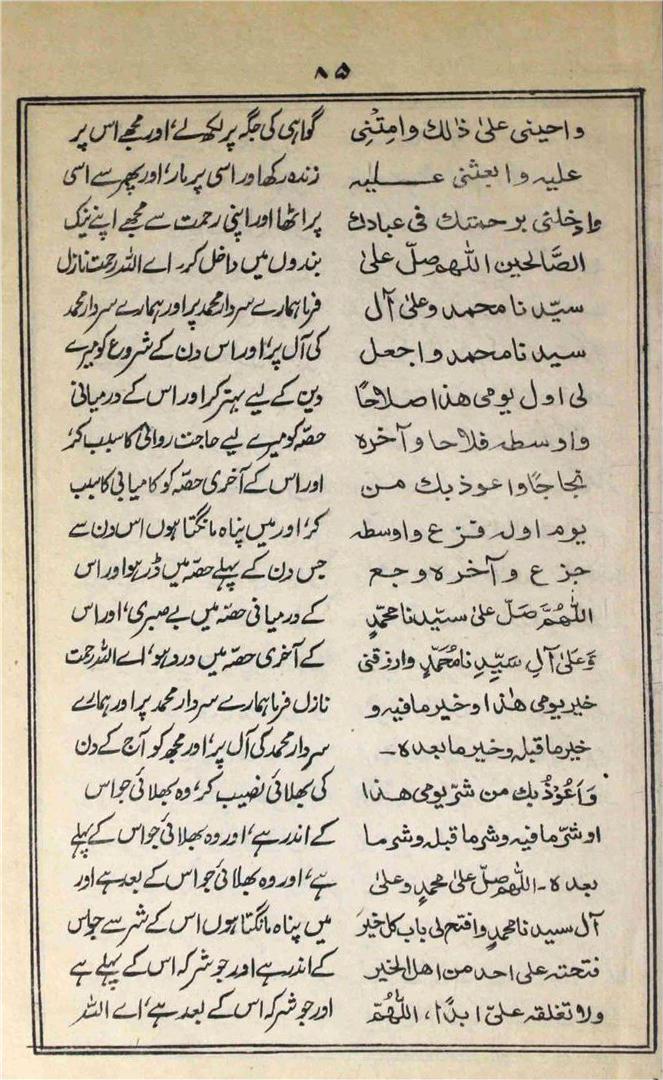 ۸۵
واحینی علیٰ ذٰلك وامِتْنِی
علیہ وابعثنی علیہ
وادخلنی برحمتك فی عبادك
الصَّالحین اللّٰھم صلّ علیٰ
سیّدنا محمد وعلیٰ آل
سیدنا محمد واجعل
لی اول یومی ھذا صلاحًا
واوسطہ فلاحا وآخرہ
نجاحًا واعوذ بك من
یوم اولہ فزع واوسطہ
جزع وآخرہ وجع
اللّٰھُمَّ صَلّ علیٰ سیّدنا محمّدٍ
وَعَلیٰ آلِ سَیِّدِنَا مُحَمَّدٍ وارزقنی
خیر یومی ھٰذا وخیر مافیہ و
خیر ماقبلہ وخیر مابعدہ۔
وَاَعُوْذُ بك من شرّ یومی ھذا
اوشرّ مافیہ وشر ماقبلہ وشر ما
بعدہ۔ اللّٰھم صلّ علیٰ محمدٍ وعلیٰ
آل سیدنا محمدٍ وافتح لی باب کل خیر
فتحتہ علی احد من اھل الخیر
ولا تغلقہ علیّ ابدًا، اللّٰھُمّ
گواہی کی جگہ پر لکھ لے، اور مجھے اس پر
زندہ رکھ اور اسی پر مار، اور پھر سے اسی
پر اٹھا اور اپنی رحمت سے مجھے اپنے نیک
بندوں میں داخل کر۔ اے اللہ رحمت نازل
فرما ہمارے سردار محمد پر اور ہمارے سردار محمد
کی آل پر، اور اس دن کے شروع کو میرے
دین کے لیے بہتر کر اور اس کے درمیانی
حصّہ کو میرے لیے حاجت روائی کا سبب کر،
اور اس کے آخری حصّہ کو کامیابی کا سبب
کر، اور میں پناہ مانگتا ہوں اس دن سے
جس دن کے پہلے حصّہ میں ڈر ہو اور اس
کے درمیانی حصّہ میں بے صبری، اور اس
کے آخری حصّہ میں درد ہو، اے اللہ رحمت
نازل فرما ہمارے سردار محمد پر اور ہمارے
سردار محمد کی آل پر، اور مجھ کو آج کے دن
کی بھلائی نصیب کر، وہ بھلائی جو اس
کے اندر ہے، اور وہ بھلائی جو اس کے پہلے
ہے، اور وہ بھلائی جو اس کے بعد ہے اور
میں پناہ مانگتا ہوں اس کے شر سے جو اس
کے اندر ہے اور جو شر کہ اس کے پہلے ہے
اور جو شر کہ اس کے بعد ہے، اے اللہ